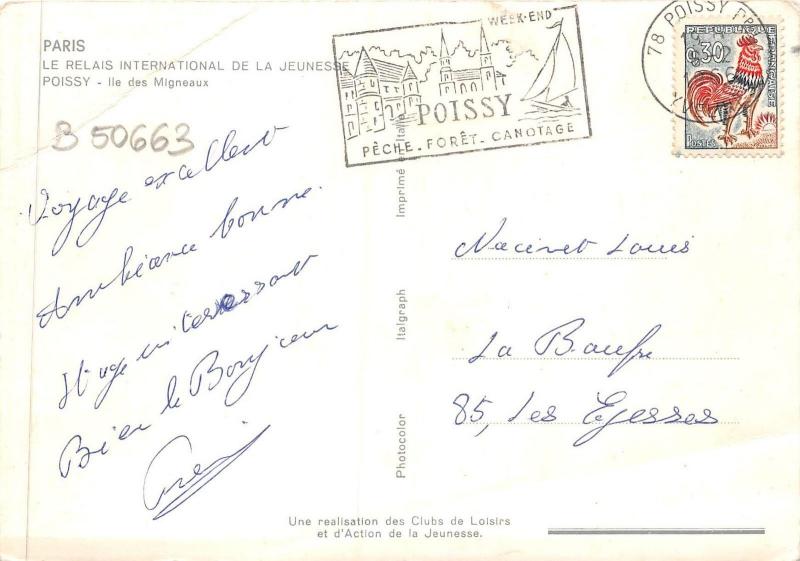 PARIS
LE RELAIS INTERNATIONAL DE LA JEUNESSE
POISSY - Ile des Migneaux
B 50663
Voyage excellent
Ambiance bonne.
Stage interessant
Bien le Bonjour
WEEK-END
POISSY
PÊCHE_FORÊT_CANOTAGE
78 POISSY
REPUBLIQUE FRANÇAISE
0,30
POSTES
Photocolor Italgraph Imprimé en Italie
Louis
La
85, Les
Une realisation des Clubs de Loisirs
et d'Action de la Jeunesse.